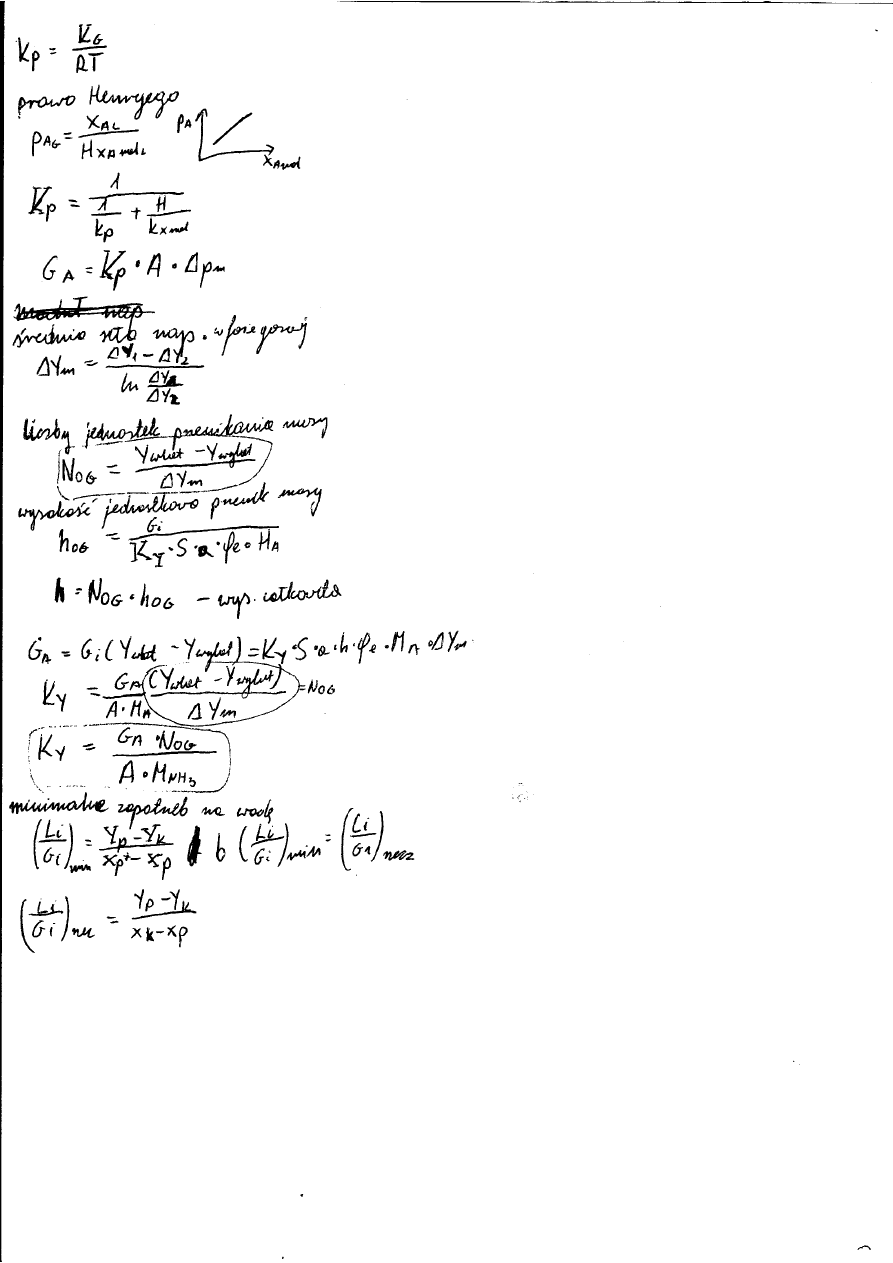 Kp = KG / RT
prawo Henryego
pAG = XAL / HXAmol pA XAmol
Kp = 1 / (1/kp + H/kxmol)
GA = Kp · A · Δpm
średnia siła nap. w fazie gazowej
ΔYm = (ΔY1 - ΔY2) / ln (ΔY1/ΔY2)
liczby jednostek przenikania masy
NOG = (Ywlot - Ywylot) / ΔYm
wysokość jednostkowa przenik masy
hOG = Gi / (KY · S · a · φe · MA)
h = NOG · hOG - wys. całkowita
GA = Gi (Ywlot - Ywylot) = KY · S · a · h · φe · MA · ΔYm
KY = GA / (A · MA) (Ywlot - Ywylot) / ΔYm = NOG
KY = GA · NOG / (A · MNH3)
minimalne zapotrzeb na wodę
(Li/Gi)min = (Yp - Yk) / (Xp* - Xp) b (Li/Gi)min = (Li/Gi)rzecz
(Li/Gi)rz = (Yp - Yk) / (Xk - Xp)